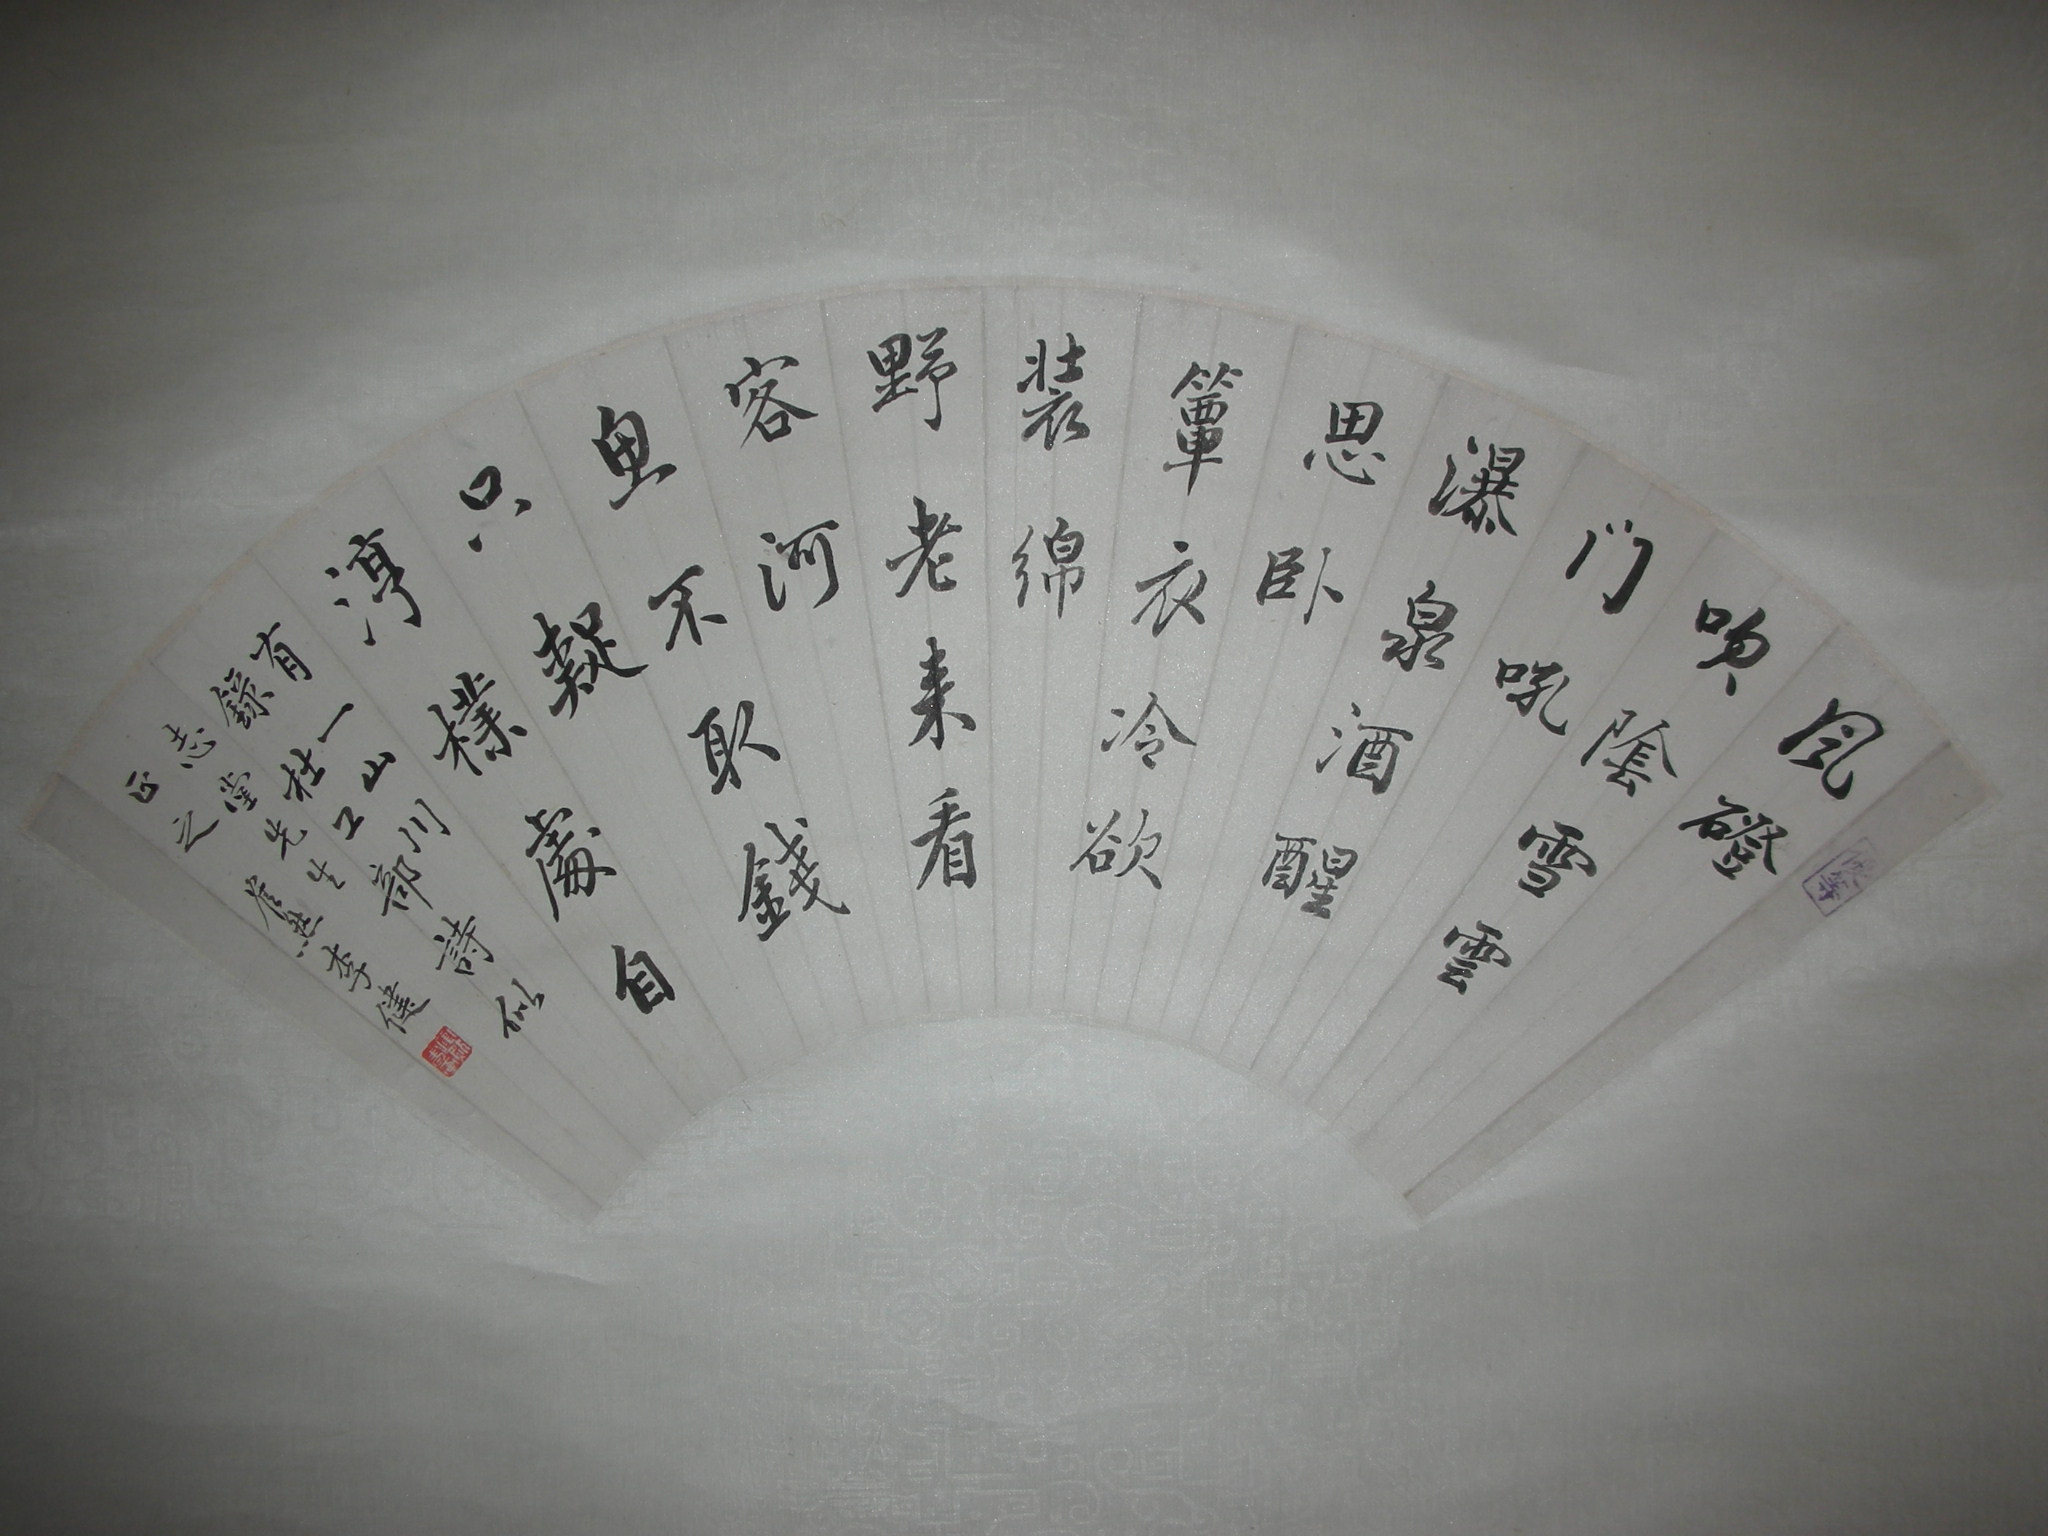 风磴
吹陰雪雲
门吼
瀑泉酒醒
思卧
簟衣冷欲
装綿
野老来看
客河
魚不取錢
只疑
淳樸處自
有一山川
錄杜工部詩似
志堂先生
正之 隺然李健